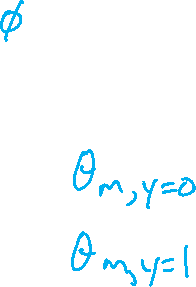 ϕ
θm,y=0
θm,y=1